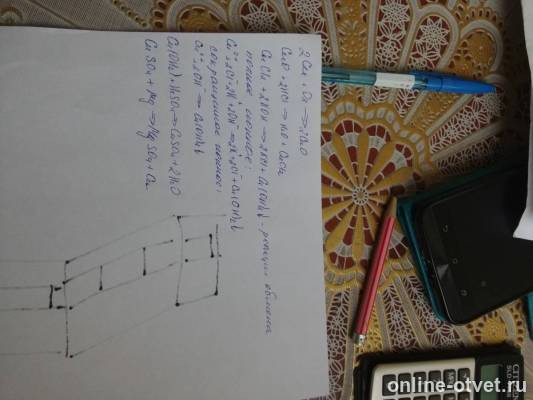 2Cu + O₂ → 2CuO
CuO + 2HCl → H₂O + CuCl₂
CuCl₂ + 2KOH → 2KCl + Cu(OH)₂↓ - реакция обмена
полное ионное:
Cu²⁺ + 2Cl⁻ + 2K⁺ + 2OH⁻ → 2K⁺ + 2Cl⁻ + Cu(OH)₂↓
сокращенное ионное:
Cu²⁺ + 2OH⁻ → Cu(OH)₂↓
Cu(OH)₂ + H₂SO₄ → CuSO₄ + 2H₂O
CuSO₄ + Mg → MgSO₄ + Cu
CITIZEN
online-otvet.ru